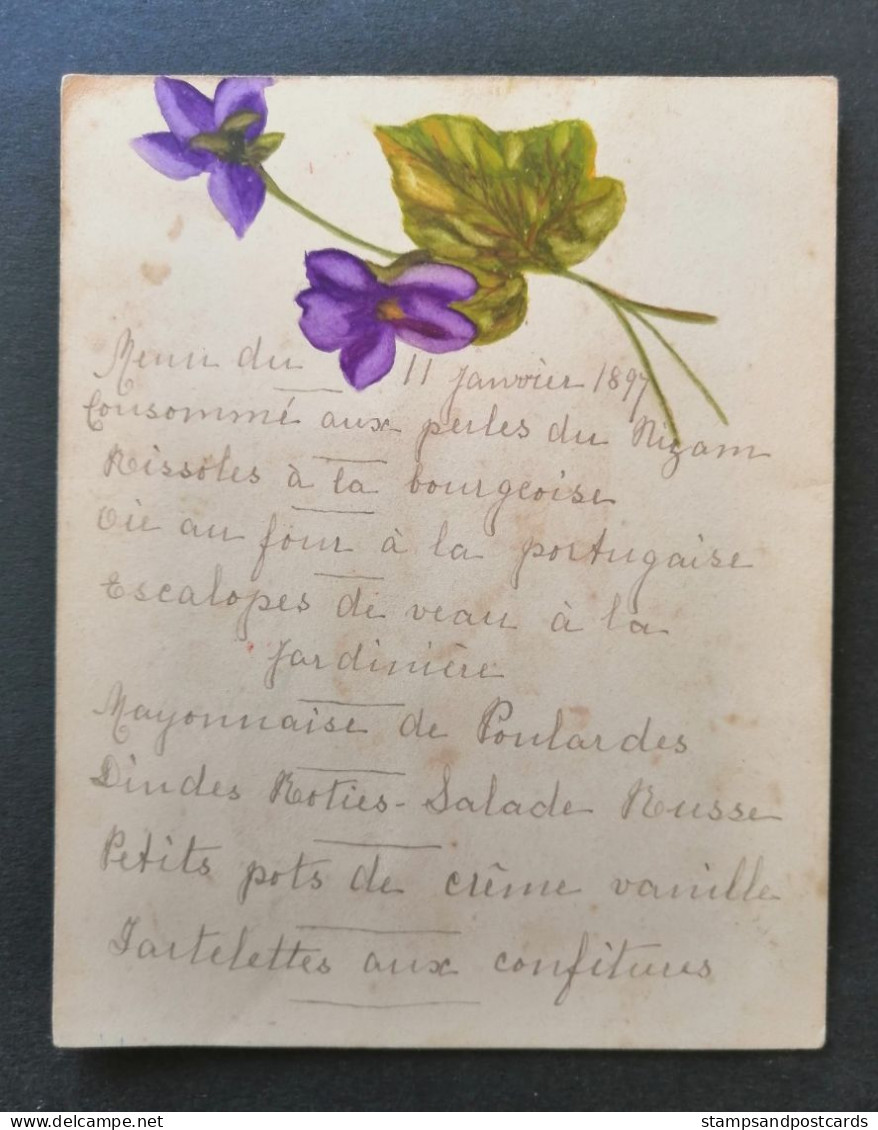 Menu du 11 Janvier 1897
Consommé aux perles du Nizam
Rissoles à la bourgeoise
Oie au four à la portugaise
Escalopes de veau à la
Jardinière
Mayonnaise de Poulardes
Dindes Roties - Salade Russe
Petits pots de crème vanille
Tartelettes aux confitures
delcampe.net
stampsandpostcards